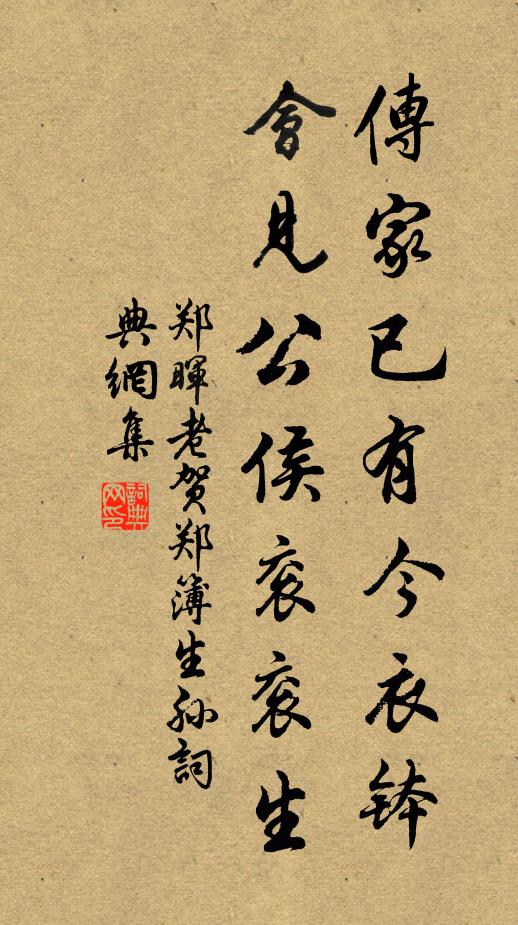 傳家已有今衣缽
會見公侯衮衮生
郑暉老贺郑簿生孙詞
典網集
詞典网印